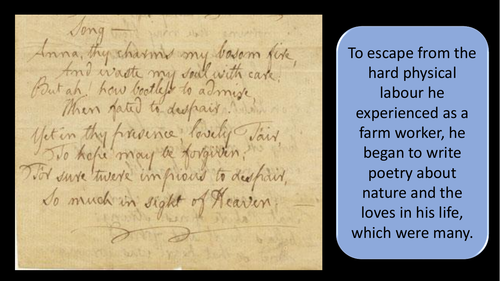 Song —
Anna, thy charms my bosom fire,
And waste my soul with care;
But ah! how bootless to admire
When fated to despair.
Yet in thy presence, lovely Fair,
To hope may be forgiven;
For sure twere impious to despair,
So much in sight of Heaven.
To escape from the
hard physical
labour he
experienced as a
farm worker, he
began to write
poetry about
nature and the
loves in his life,
which were many.